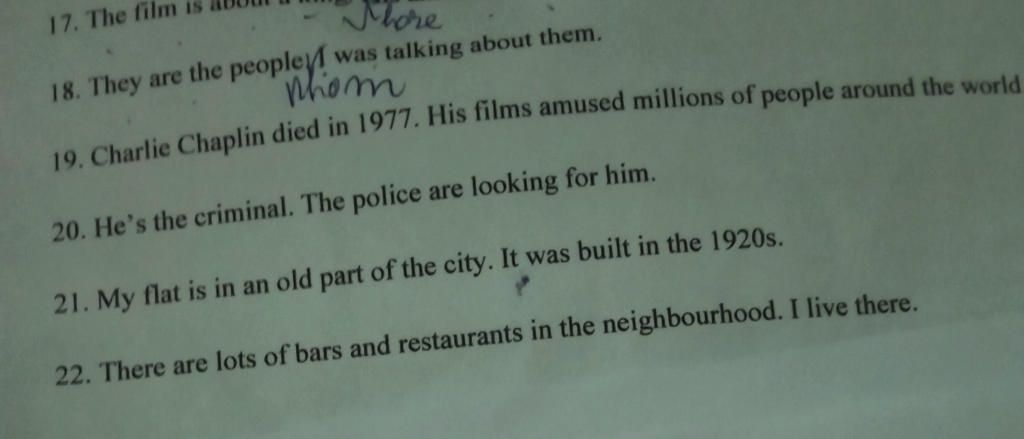 17. The film is about a
18. They are the people I was talking about them.
whom
19. Charlie Chaplin died in 1977. His films amused millions of people around the world
20. He's the criminal. The police are looking for him.
21. My flat is in an old part of the city. It was built in the 1920s.
22. There are lots of bars and restaurants in the neighbourhood. I live there.